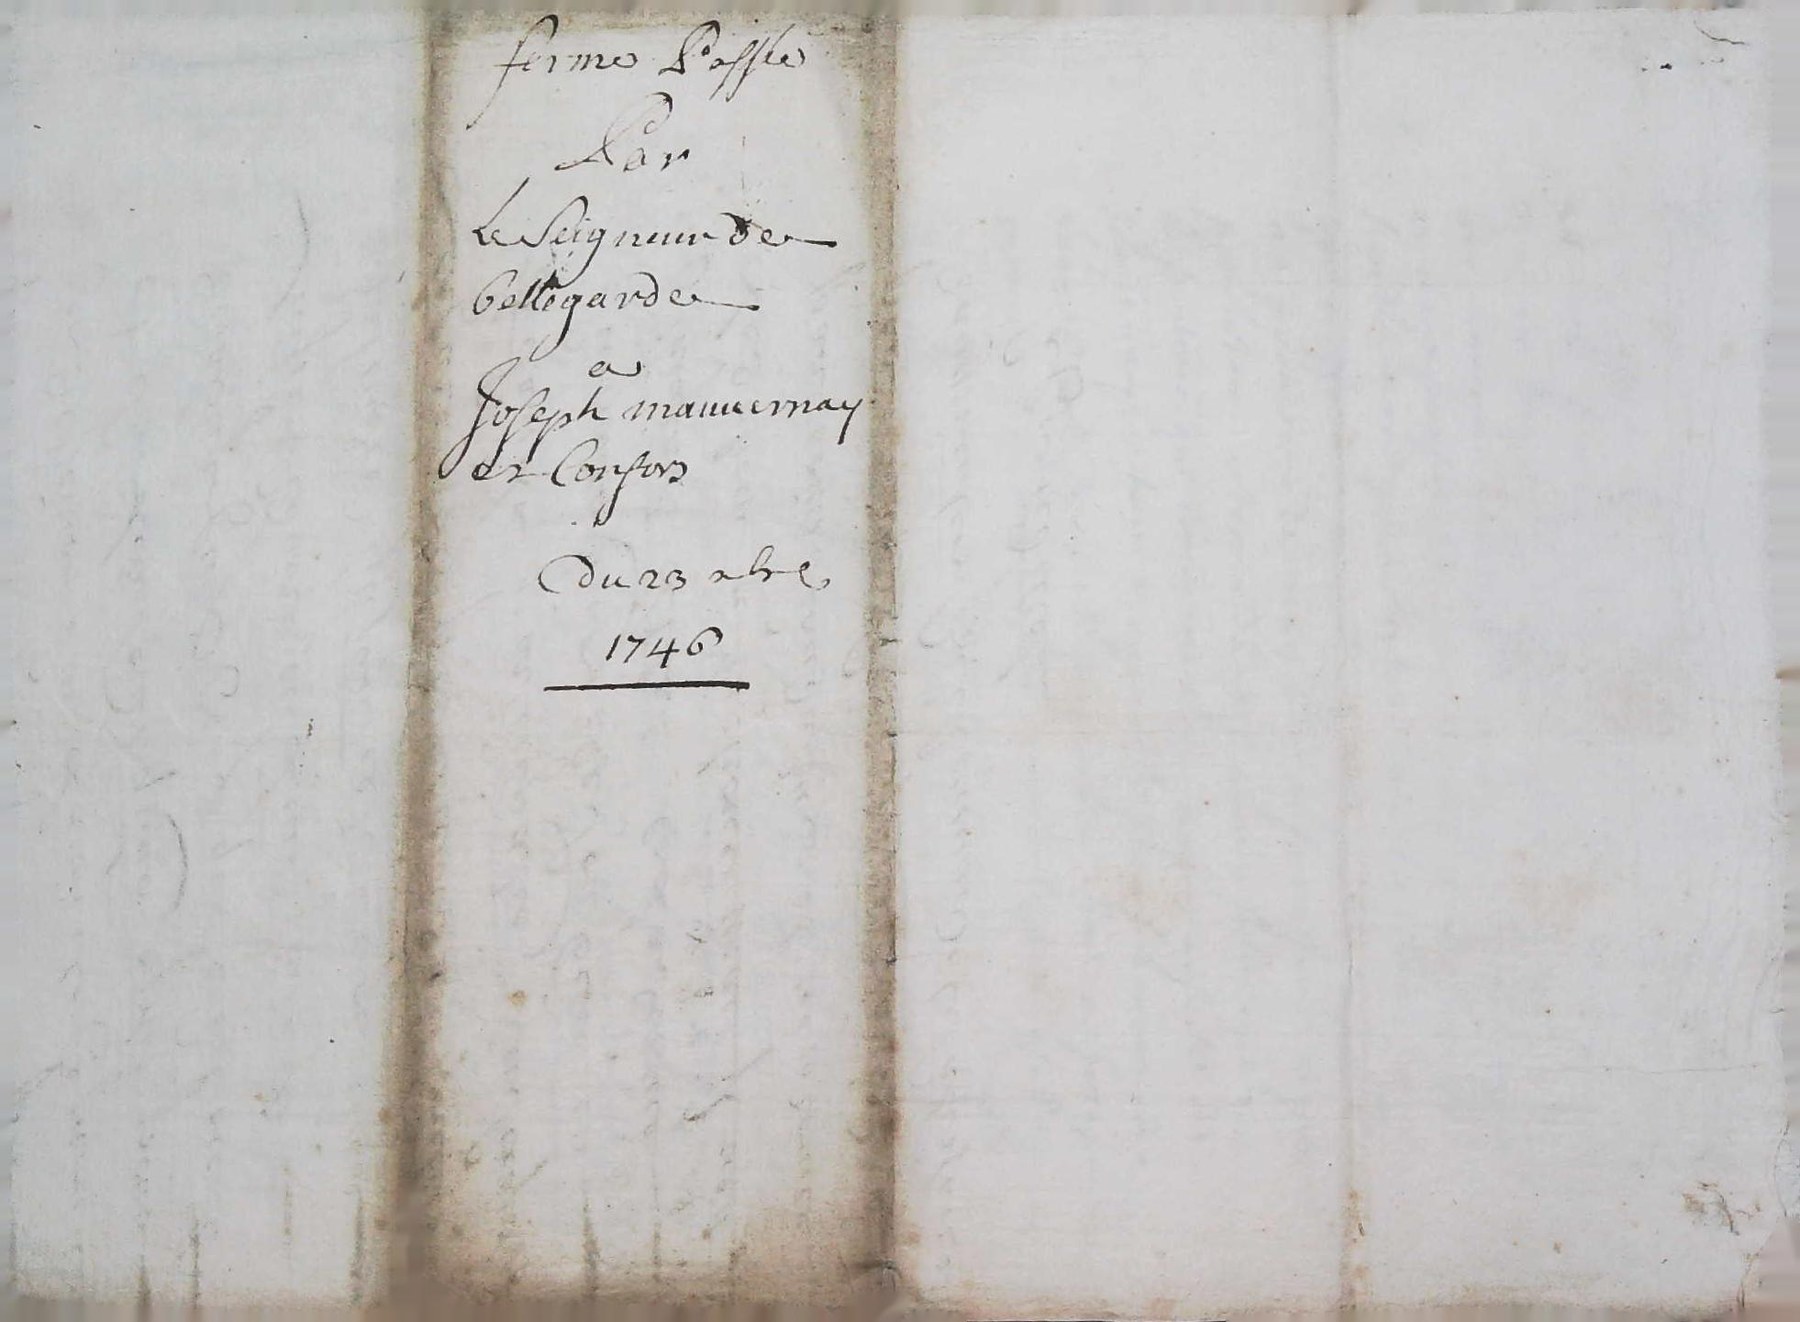 ferme Passée
Par
Le Seigneur de
bellegarde
a
Joseph mauvernay
et Consors
Du 23 xbre
1746